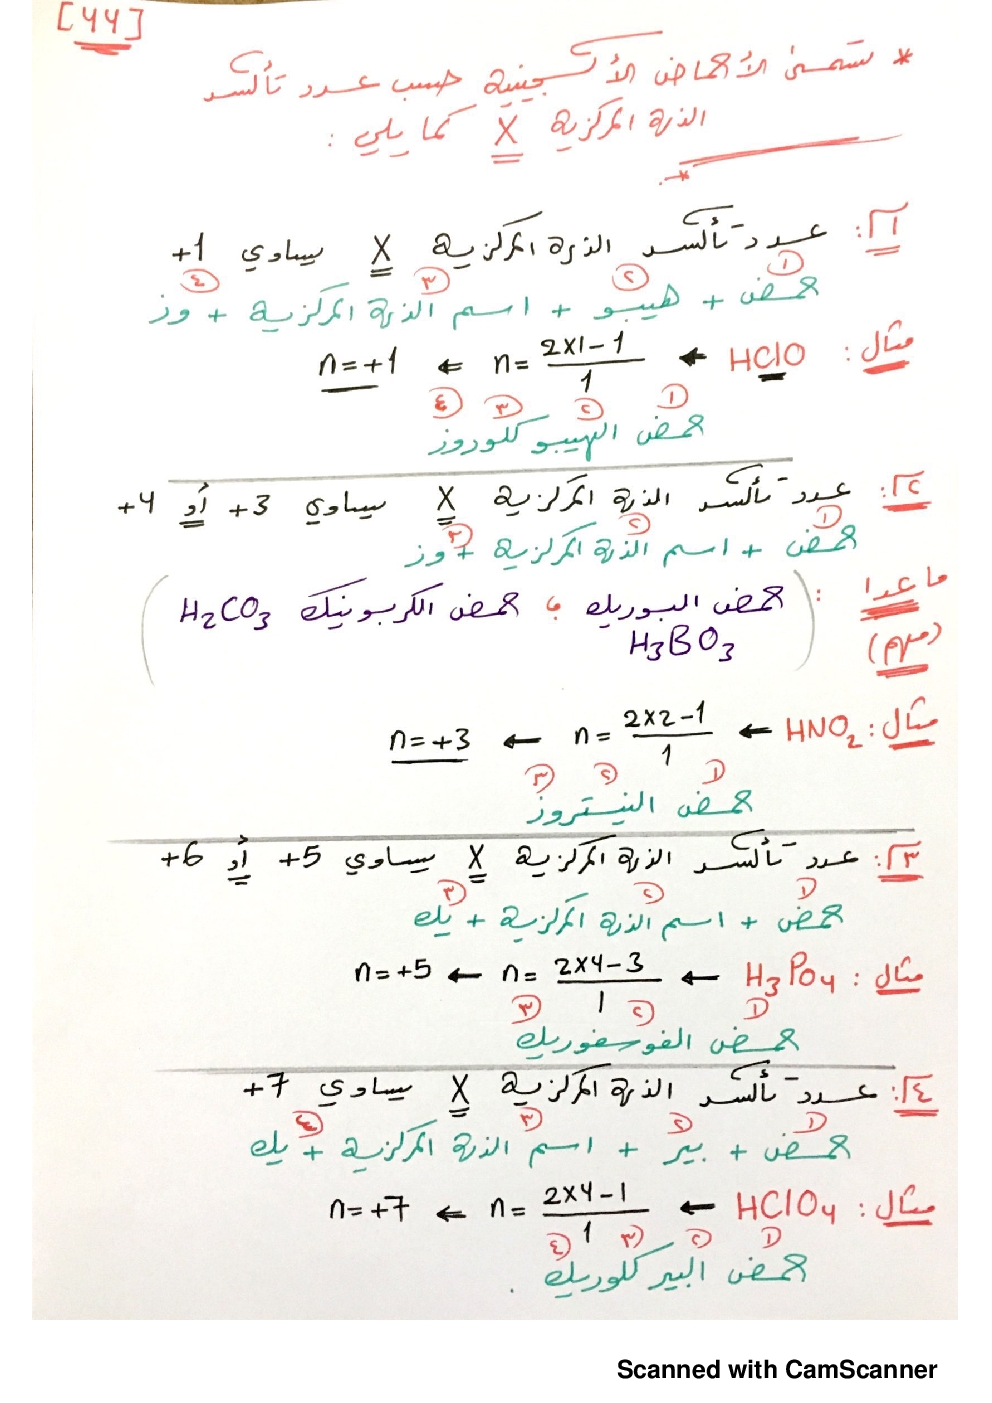 [٢٢]
* تسمى الأحماض الأكسجينية حسب عدد تأكسد
الذرة المركزية X كما يلي :
١: عدد تأكسد الذرة المركزية X يساوي +1
① ② ③ ④
حمض + هيبو + اسم الذرة المركزية + وز
مثال : HClO ← n= 2x1-1 / 1 ⇐ n=+1
① ② ③ ④
حمض الهيبو كلوروز
٢: عدد تأكسد الذرة المركزية X يساوي +3 أو +4
① ② ③
حمض + اسم الذرة المركزية + وز
ما عدا : (حمض البوريك ، حمض الكربونيك H2CO3
(مهم) H3BO3)
مثال : HNO2 ← n= 2x2-1 / 1 ← n=+3
① ② ③
حمض النيتروز
٣: عدد تأكسد الذرة المركزية X يساوي +5 أو +6
① ② ③
حمض + اسم الذرة المركزية + يك
مثال : H3PO4 ← n= 2x4-3 / 1 ← n=+5
① ② ③
حمض الفوسفوريك
٤: عدد تأكسد الذرة المركزية X يساوي +7
① ② ③ ④
حمض + بير + اسم الذرة المركزية + يك
مثال : HClO4 ← n= 2x4-1 / 1 ⇐ n=+7
① ② ③ ④
حمض البير كلوريك
Scanned with CamScanner